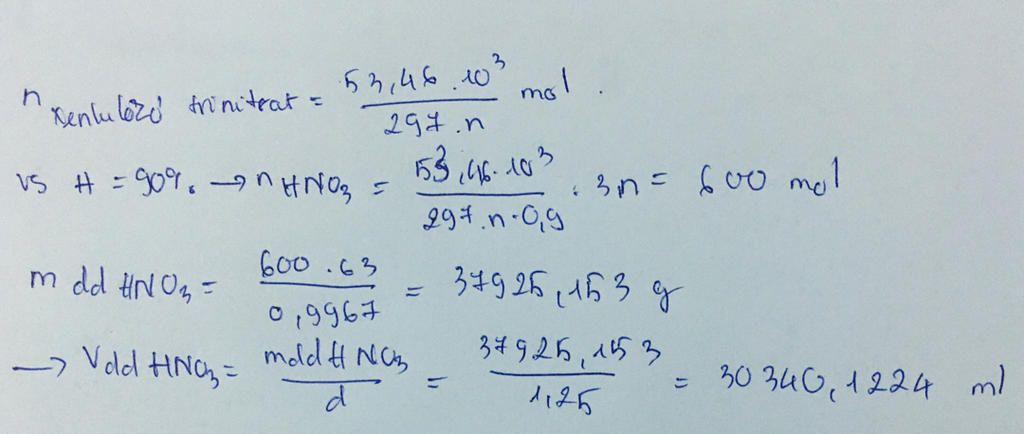 n xenlulôzơ trinitrat = 53,46 . 10³ / 297 . n mol .
vs H = 90% → n HNO₃ = 53,46 . 10³ / 297 . n . 0,9 . 3n = 600 mol
m dd HNO₃ = 600 . 63 / 0,9967 = 37925,153 g
→ Vdd HNO₃ = mdd HNO₃ / d = 37925,153 / 1,25 = 30340,1224 ml